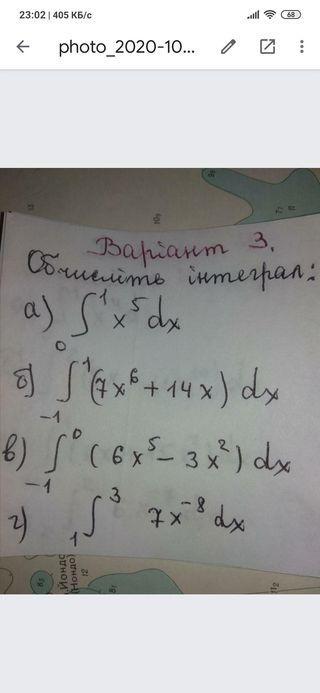 23:02 | 405 КБ/с
68
photo_2020-10...
Варіант 3.
Обчисліть інтеграл:
а) ∫₀¹ x⁵ dx
б) ∫₋₁¹ (7x⁶ + 14x) dx
в) ∫₋₁⁰ (6x⁵ - 3x²) dx
г) ₁∫³ 7x⁻⁸ dx